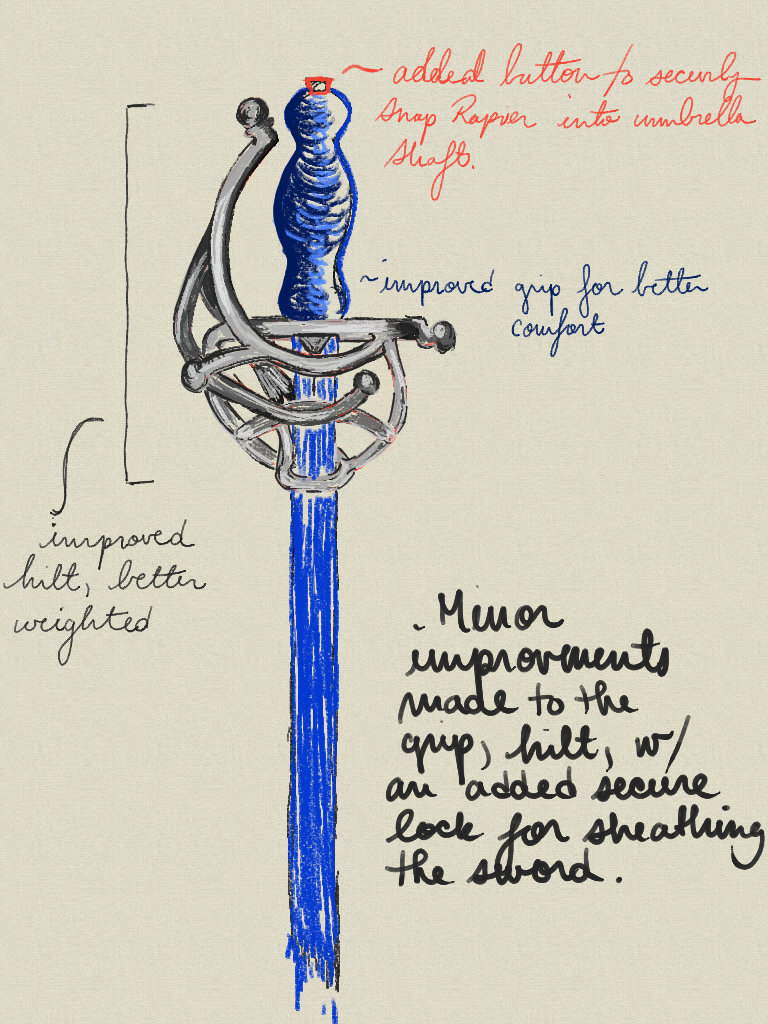 ~ added button to securly
snap Rapier into umbrella
shaft.
~improved grip for better
comfort
improved
hilt, better
weighted
~ Minor
improvements
made to the
grip, hilt, w/
an added secure
lock for sheathing
the sword.